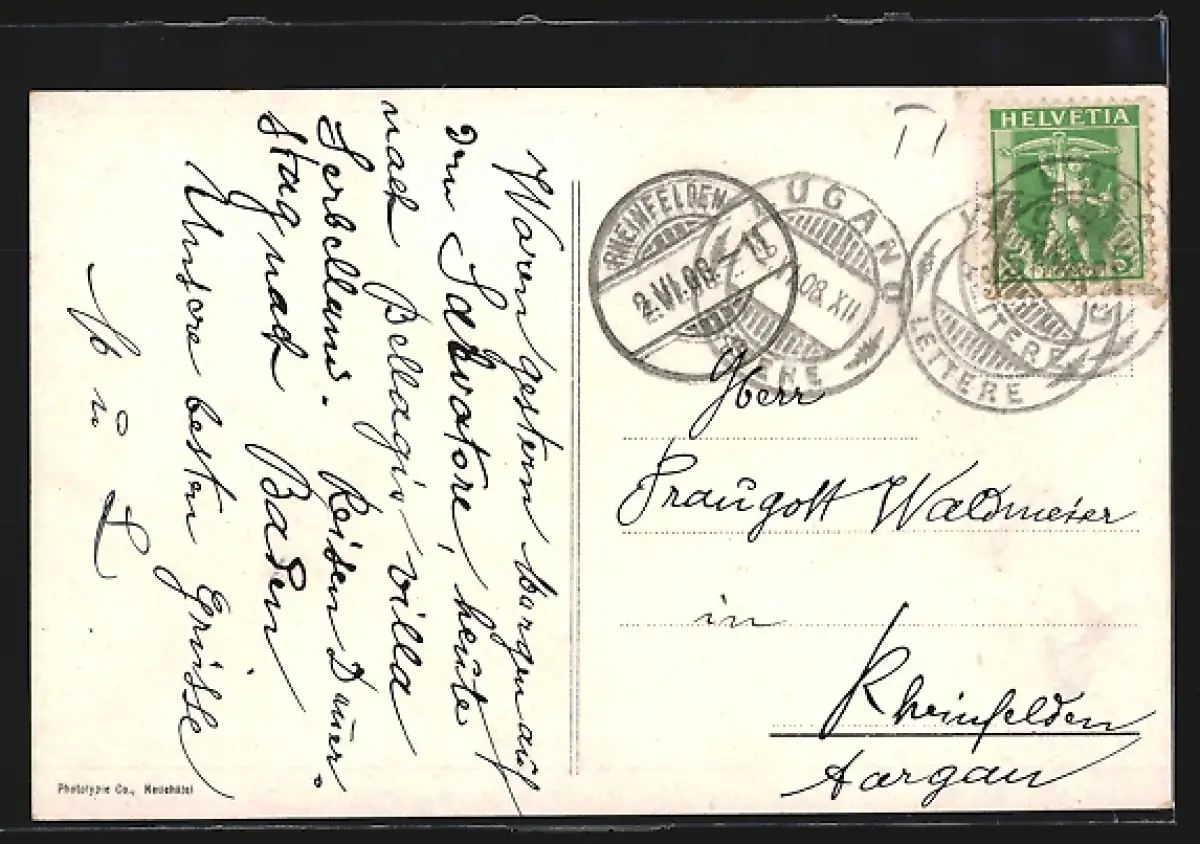 Waren gestern Morgen auf
dem Salvatore, heute
nach Bellagio villa
Serbelloni. Reisen Dauer-
stag nach Baden
Unsere besten Grüsse
HELVETIA
5
RHEINFELDEN
2.VI.08.
LUGANO
08.XII
LETTERE
LETTERE
Herr
Traugott Waldmeier
in
Rheinfelden
Aargau
Phototypie Co., Neuchâtel